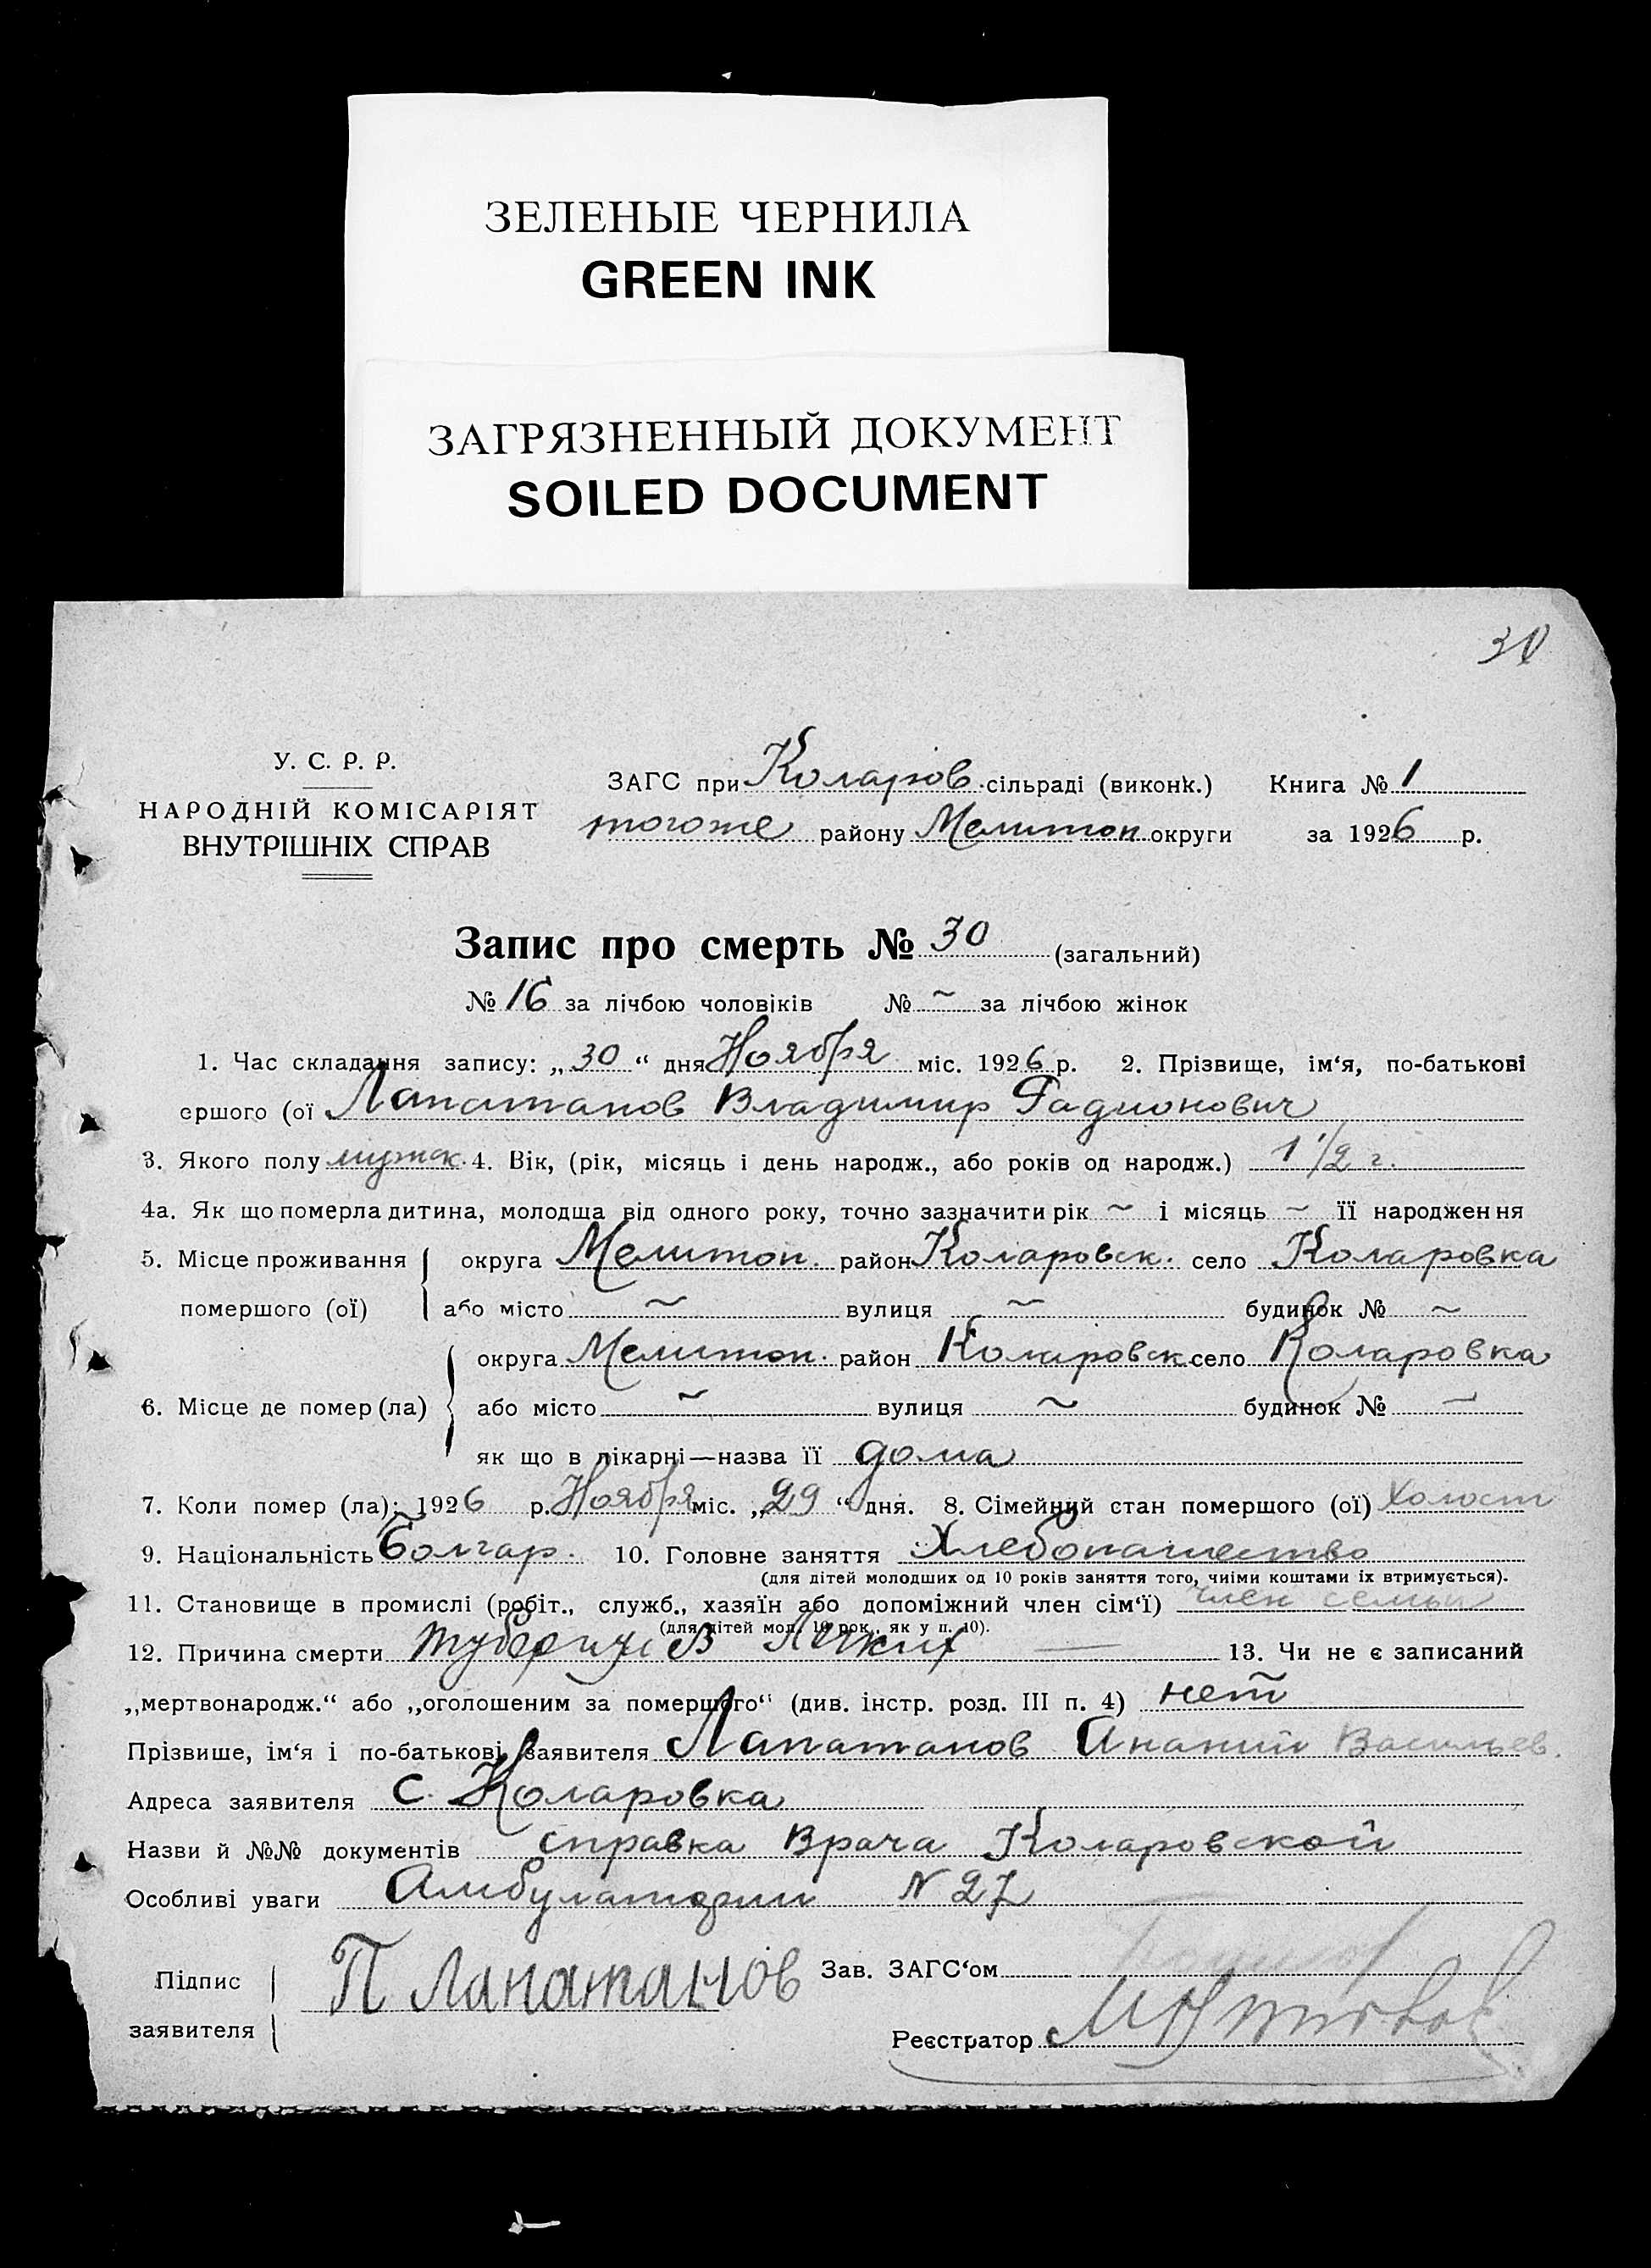 ЗЕЛЕНЫЕ ЧЕРНИЛА
GREEN INK
ЗАГРЯЗНЕННЫЙ ДОКУМЕНТ
SOILED DOCUMENT
30
У. С. Р. Р.
НАРОДНІЙ КОМІСАРІЯТ
ВНУТРІШНІХ СПРАВ
ЗАГС при Коларов. сільраді (виконк.) Книга № 1
тогоже району Мелитоп округи за 1926 р.
Запис про смерть № 30 (загальний)
№ 16 за лічбою чоловіків № ~ за лічбою жінок
1. Час складання запису: „30“ дня Ноября міс. 1926 р. 2. Прізвище, ім‘я, по-батькові
ершого (ої Лапатанов Владимир Радионович
3. Якого полу мужск. 4. Вік, (рік, місяць і день народж., або років од народж.) 1 1/2 г.
4а. Як що померла дитина, молодща від одного року, точно зазначити рік ~ і місяць ~ її народження
5. Місце проживання округа Мелитоп. район Коларовск. село Коларовка
помершого (ої) або місто ~ вулиця ~ будинок № ~
округа Мелитоп. район Коларовск. село Коларовка
6. Місце де помер (ла) або місто ~ вулиця ~ будинок № ~
як що в лікарні—назва її дома
7. Коли помер (ла): 1926 р. Ноября міс. „29“ дня. 8. Сімейний стан помершого (ої) Холост
9. Національність Болгар. 10. Головне заняття Хлебопашество
(для дітей молодших од 10 років заняття того, чиіми коштами їх втримується).
11. Становище в промислі (робіт., служб., хазяїн або допоміжний член сім‘ї) член семьи
(для дітей мол. 10 рок., як у п. 10).
12. Причина смерти Легких — 13. Чи не є записаний
„мертвонародж.“ або „оголошеним за помершого“ (див. інстр. розд. III п. 4) нет
Прізвише, ім‘я і по-батькові заявителя Лапатанов Ананий Васильев.
Адреса заявителя С. Коларовка
Назви й №№ документів справка Врача Коларовской
Особливі уваги Амбулатории N 27
Підпис П Лапатанов Зав. ЗАГС‘ом
заявителя
Реєстратор